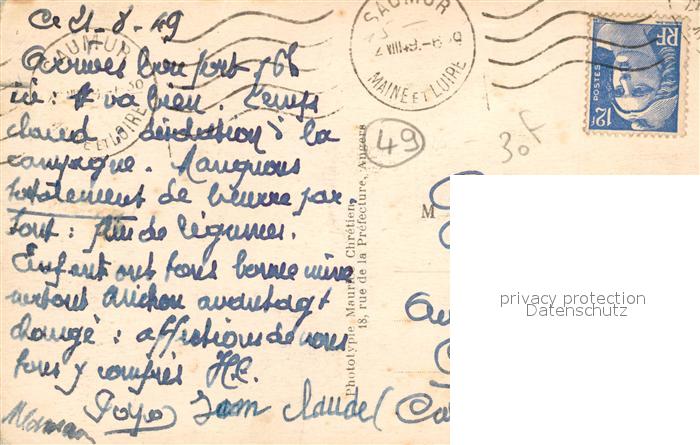 Ce 21-8-49
Arrivés bon port 76h
ici : tt va bien. Temps
chaud désolation à la
campagne. Manquons
totalement de beurre par
tout : plus de légumes.
Enfants ont tous bonne mine
surtout Michou avantagt
changé : affections de nous
tous y compris H.C.
Yoyo Jean Claude
Maman
SAUMUR
MAINE ET LOIRE
SAUMUR
ET LOIRE
POSTES
RF
12F
49
30F
M
Phototypie Maurice Chrétien,
18, rue de la Préfecture, Angers
privacy protection
Datenschutz